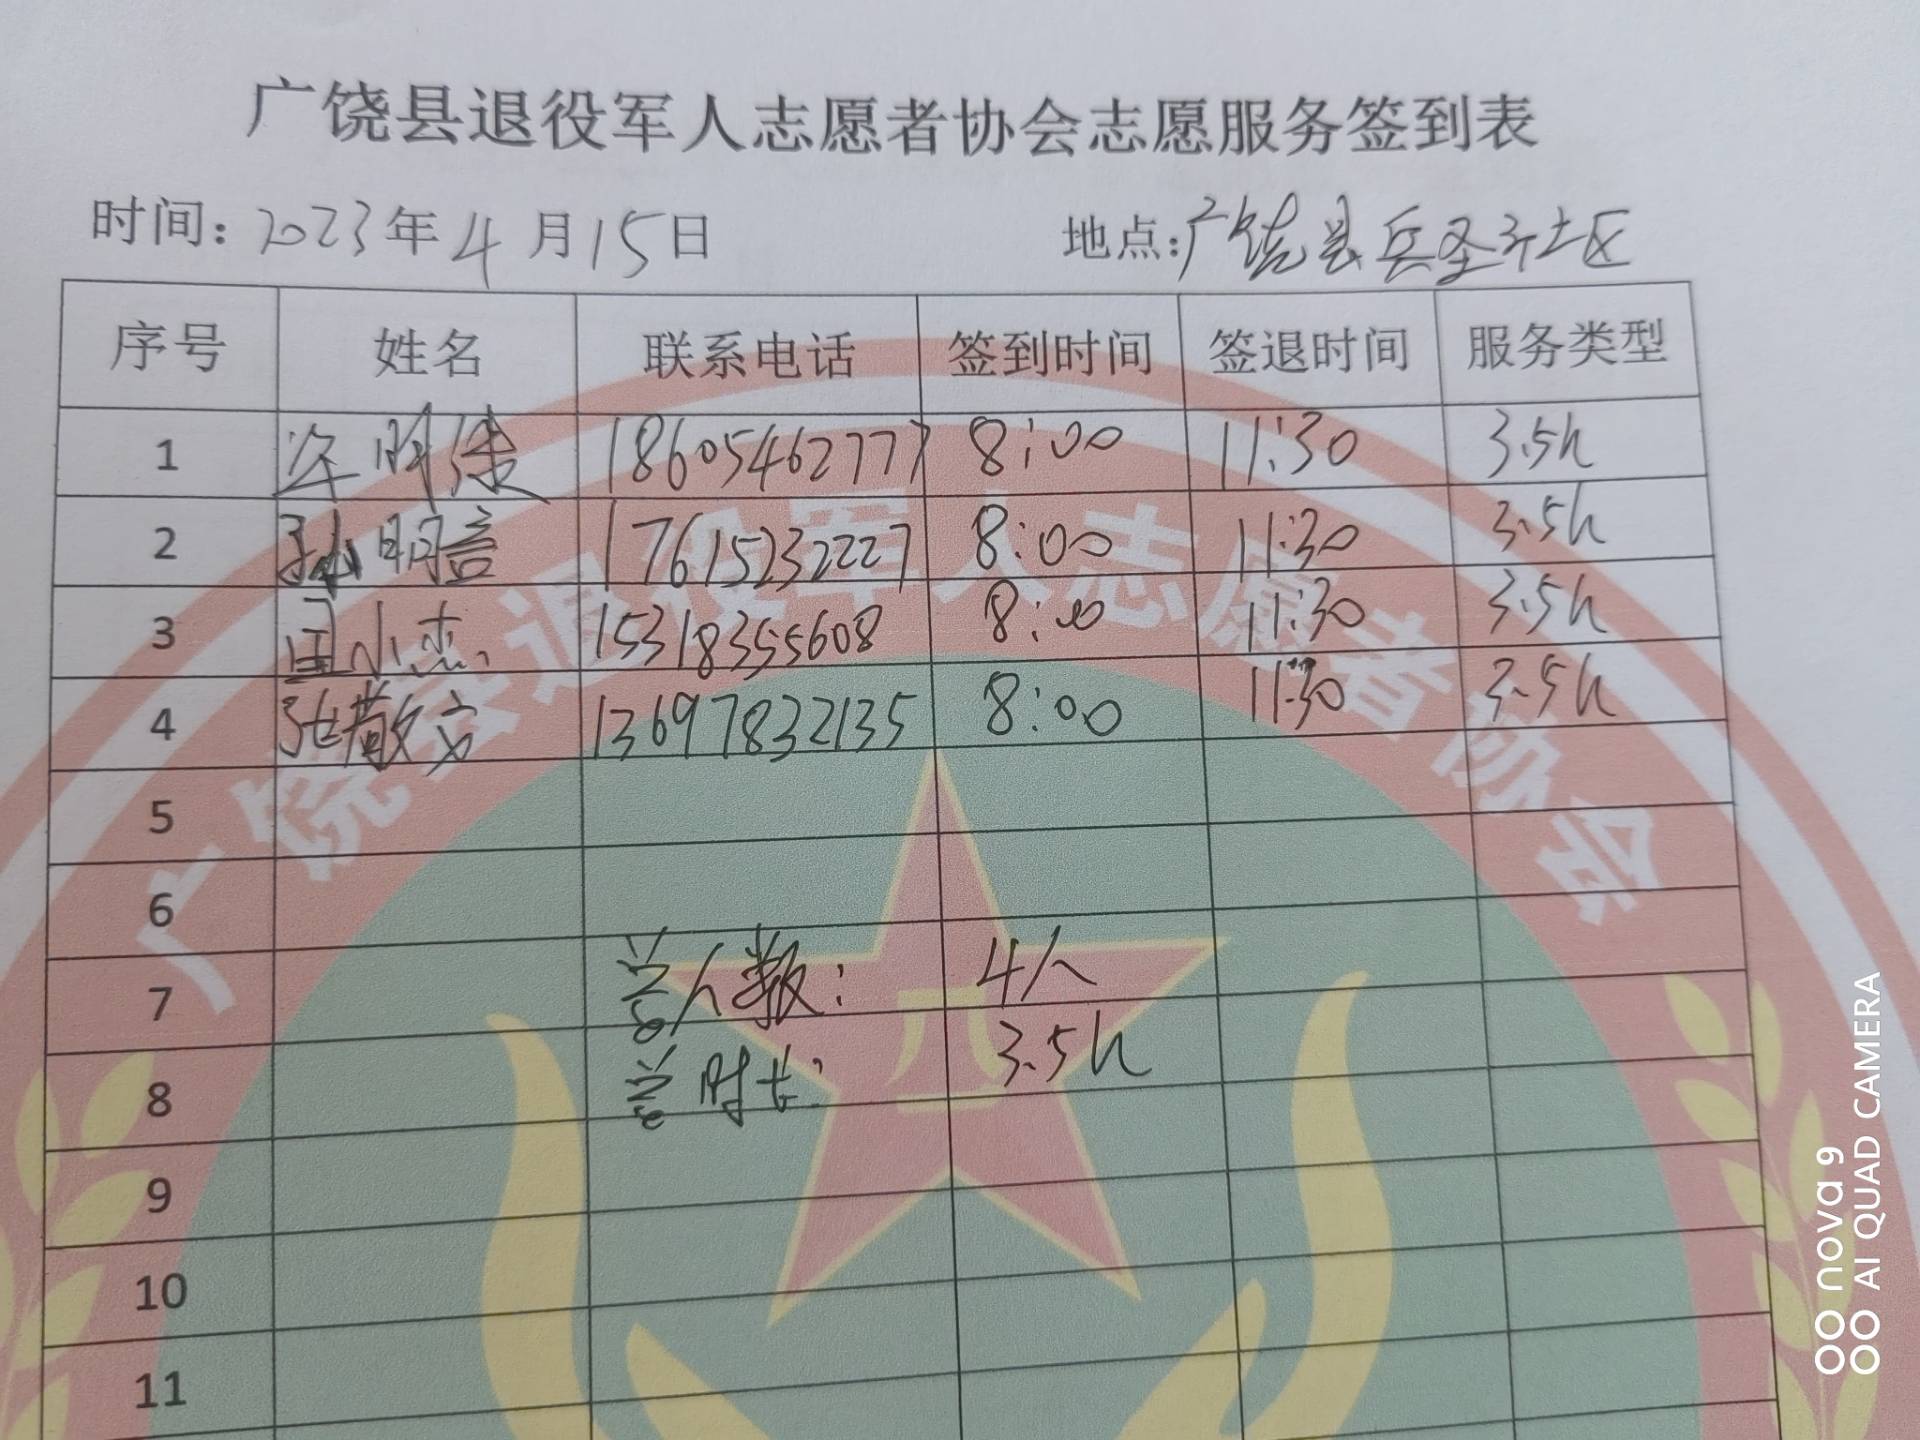 广饶县退役军人志愿者协会志愿服务签到表
时间: 2023年4月15日 地点:广饶县兵圣社区
序号 姓名 联系电话 签到时间 签退时间 服务类型
1 18605462777 8:00 11:30 3.5h
2 孙明言 17615232227 8:00 11:30 3.5h
3 15318355608 8:00 11:30 3.5h
4 张文 13697832135 8:00 11:30 3.5h
5
6
7 总人数: 4人
8 总时长: 3.5h
9
10
11
广饶县退役军人志愿者协会
八一
nova 9
AI QUAD CAMERA